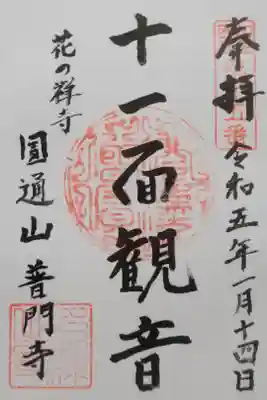 奉拝
令和五年一月十四日
十一面観音
花の禅寺
圓通山 普門寺